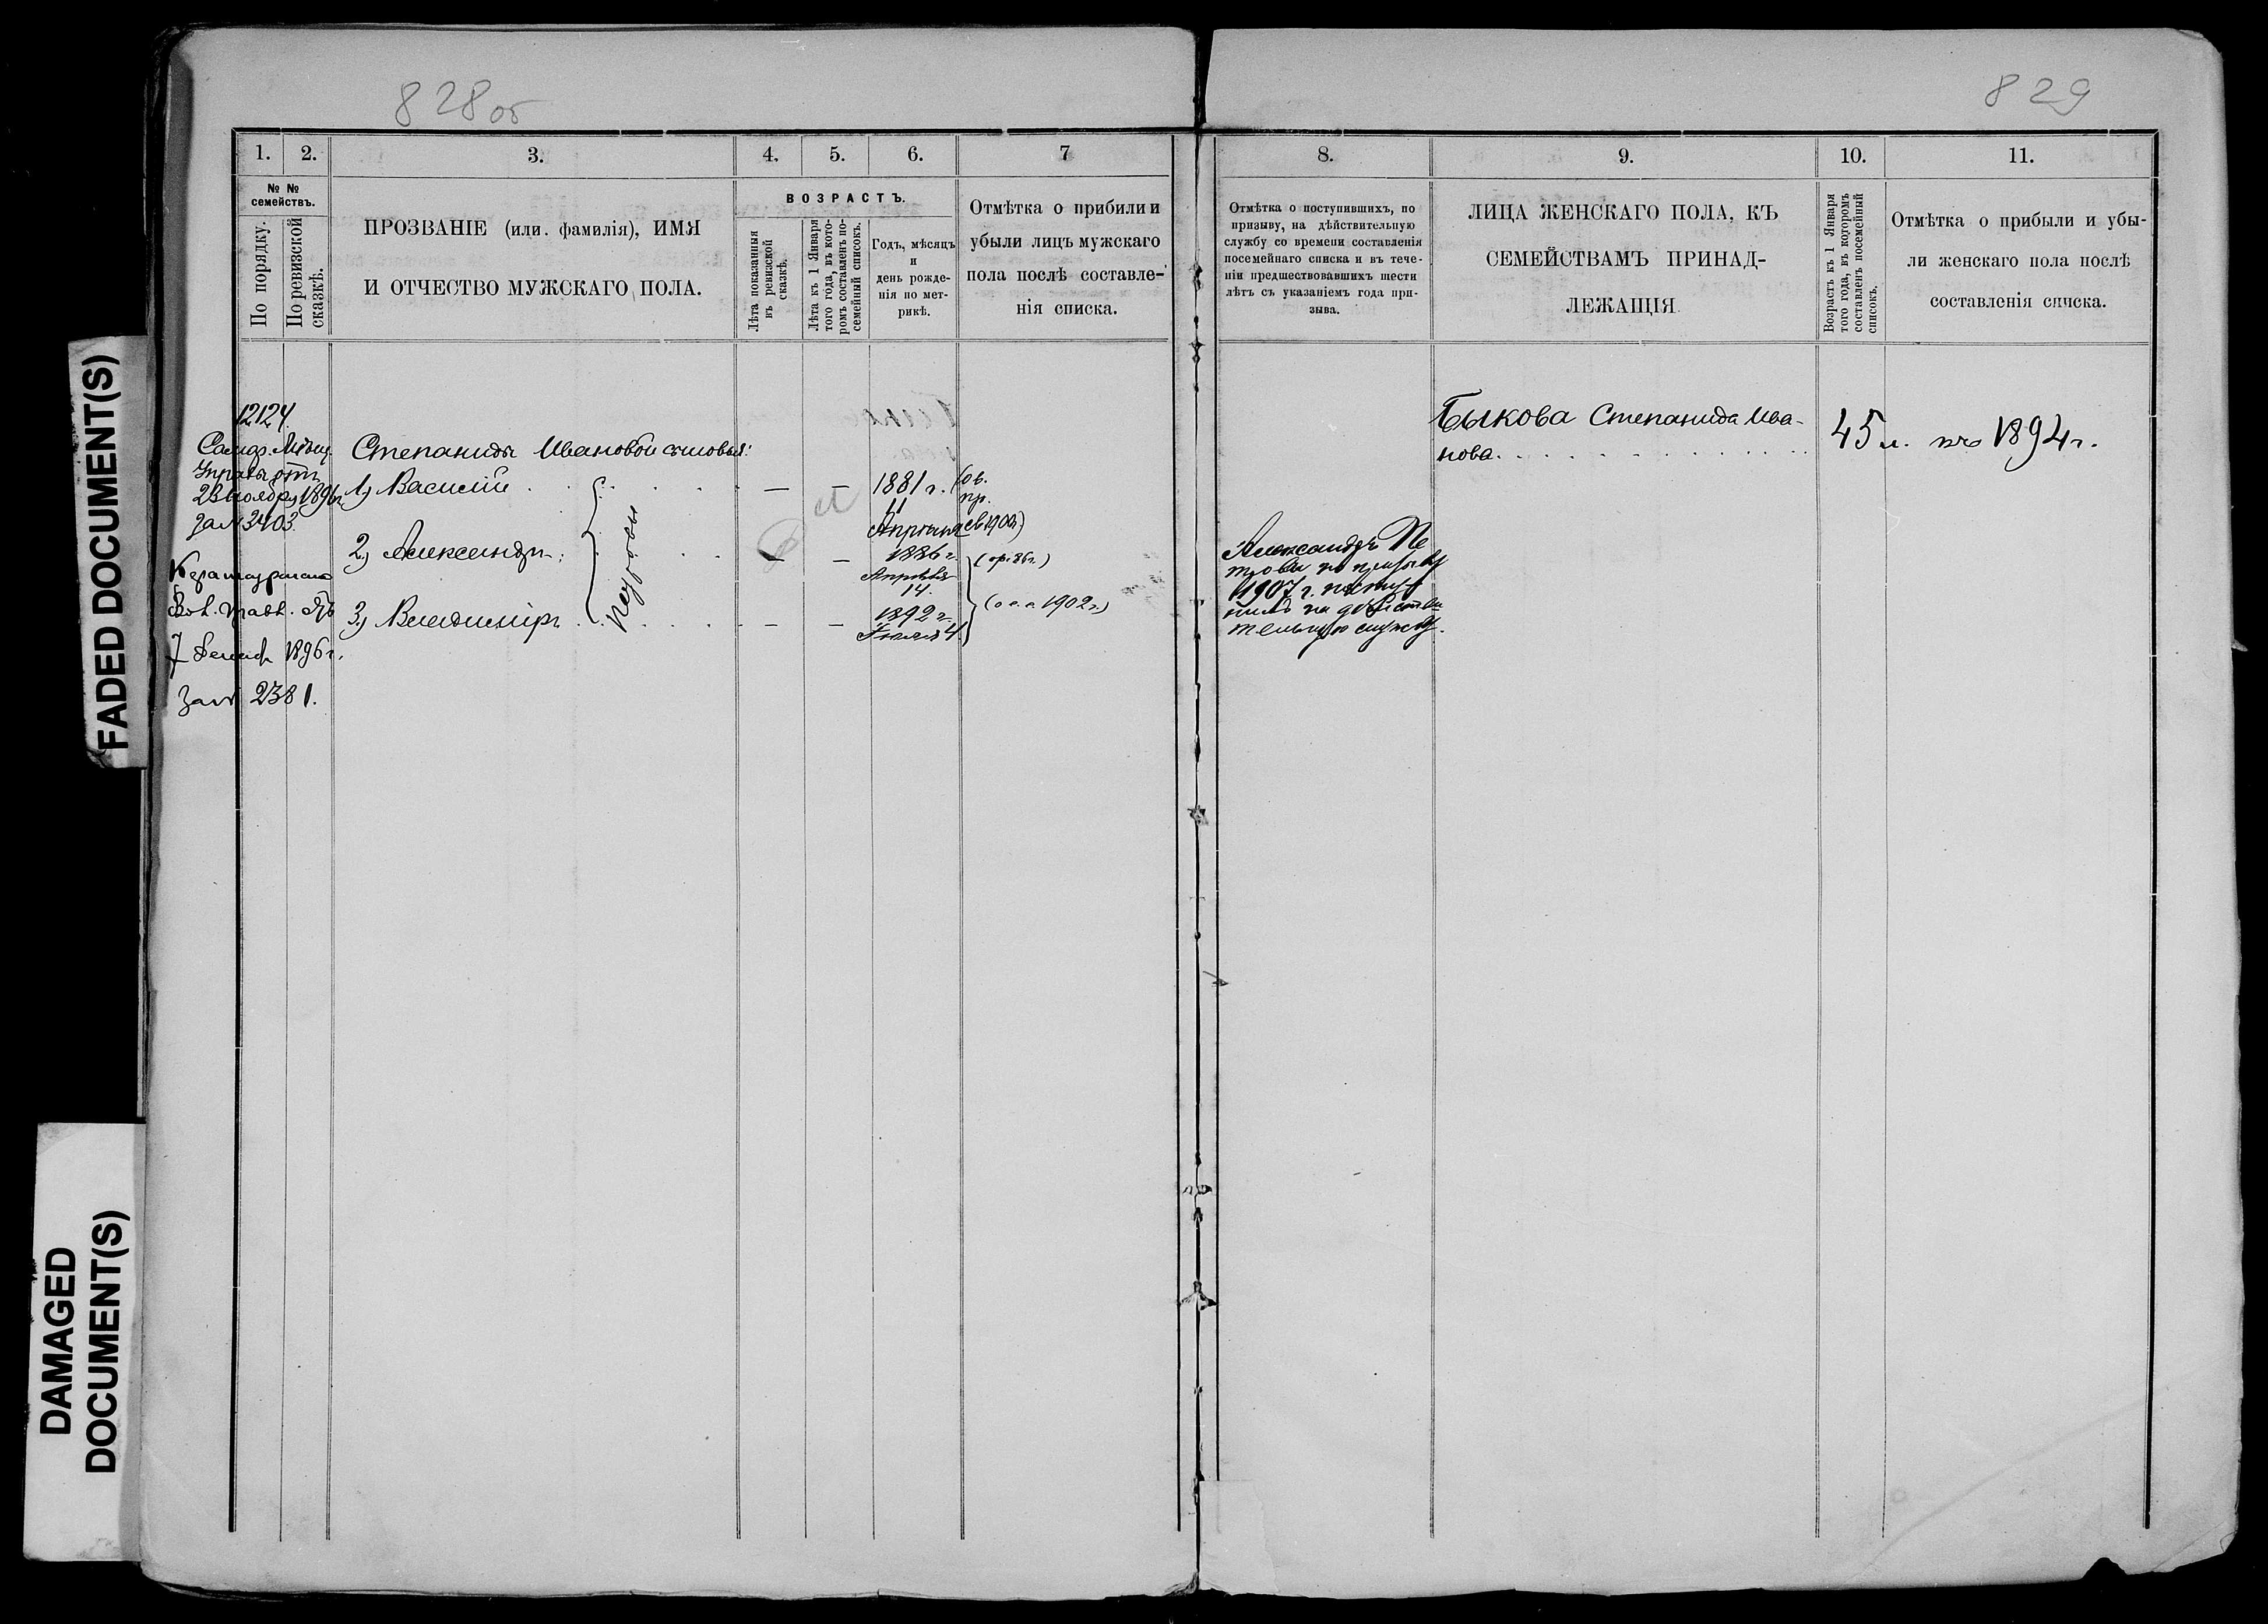 828об
829
1.
2.
3.
4.
5.
6.
7
№ №
семействъ.
По порядку.
По ревизской
сказкѣ.
ПРОЗВАНІЕ (или фамилія), ИМЯ
И ОТЧЕСТВО МУЖСКАГО ПОЛА.
ВОЗРАСТЪ.
Лѣта показанныя
въ ревизской
сказкѣ.
Лѣта къ 1 Января
того года, въ кото-
ромъ составленъ по-
семейный списокъ.
Годъ, мѣсяцъ
и
день рожде-
нія по мет-
рикѣ.
Отмѣтка о прибыли и
убыли лицъ мужскаго
пола послѣ составле-
нія списка.
12124.
Управы отъ
23 ноября 1896г
за № 3403.
7 1896г.
за № 2381.
Степаниды Ивановой сыновья:
1) Василій
2) Александръ
3) Владиміръ
Петровы
1881 г.
11
Апрѣля
1886 г.
Апрѣля
14.
1892 г.
4.
(ов.
пр.
св 1900)
(1902 г.)
8.
9.
10.
11.
Отмѣтка о поступившихъ, по
призыву, на дѣйствительную
службу со времени составленія
посемейнаго списка и въ тече-
ніи предшествовавшихъ шести
лѣтъ съ указаніемъ года при-
зыва.
ЛИЦА ЖЕНСКАГО ПОЛА, КЪ
СЕМЕЙСТВАМЪ ПРИНАД-
ЛЕЖАЩІЯ
Возрастъ къ 1 Января
того года, въ которомъ
составленъ посемейный
списокъ.
Отмѣтка о прибыли и убы-
ли женскаго пола послѣ
составленія списка.
Александръ Пе
тровъ по призыву
1907 г. посту
пилъ на дѣйстви
тельную службу.
Быкова Степанида Ива-
нова.
45 л. 1894 г.
FADED DOCUMENT(S)
DAMAGED
DOCUMENT(S)